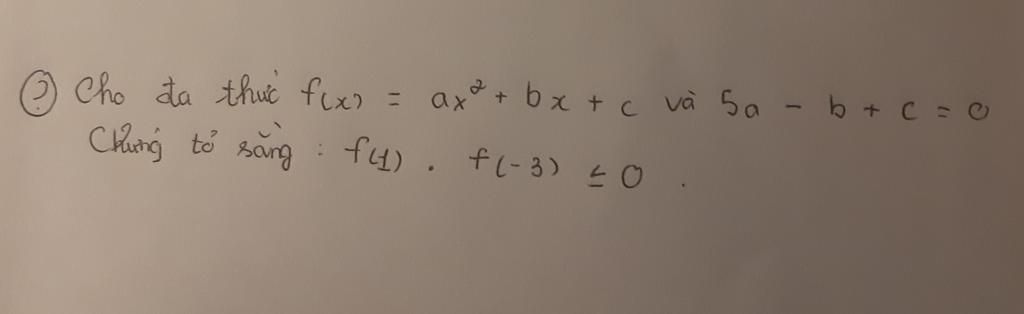 ? Cho đa thức f(x) = ax² + bx + c và 5a - b + c = 0
Chứng tỏ rằng : f(1) . f(-3) ≤ 0 .